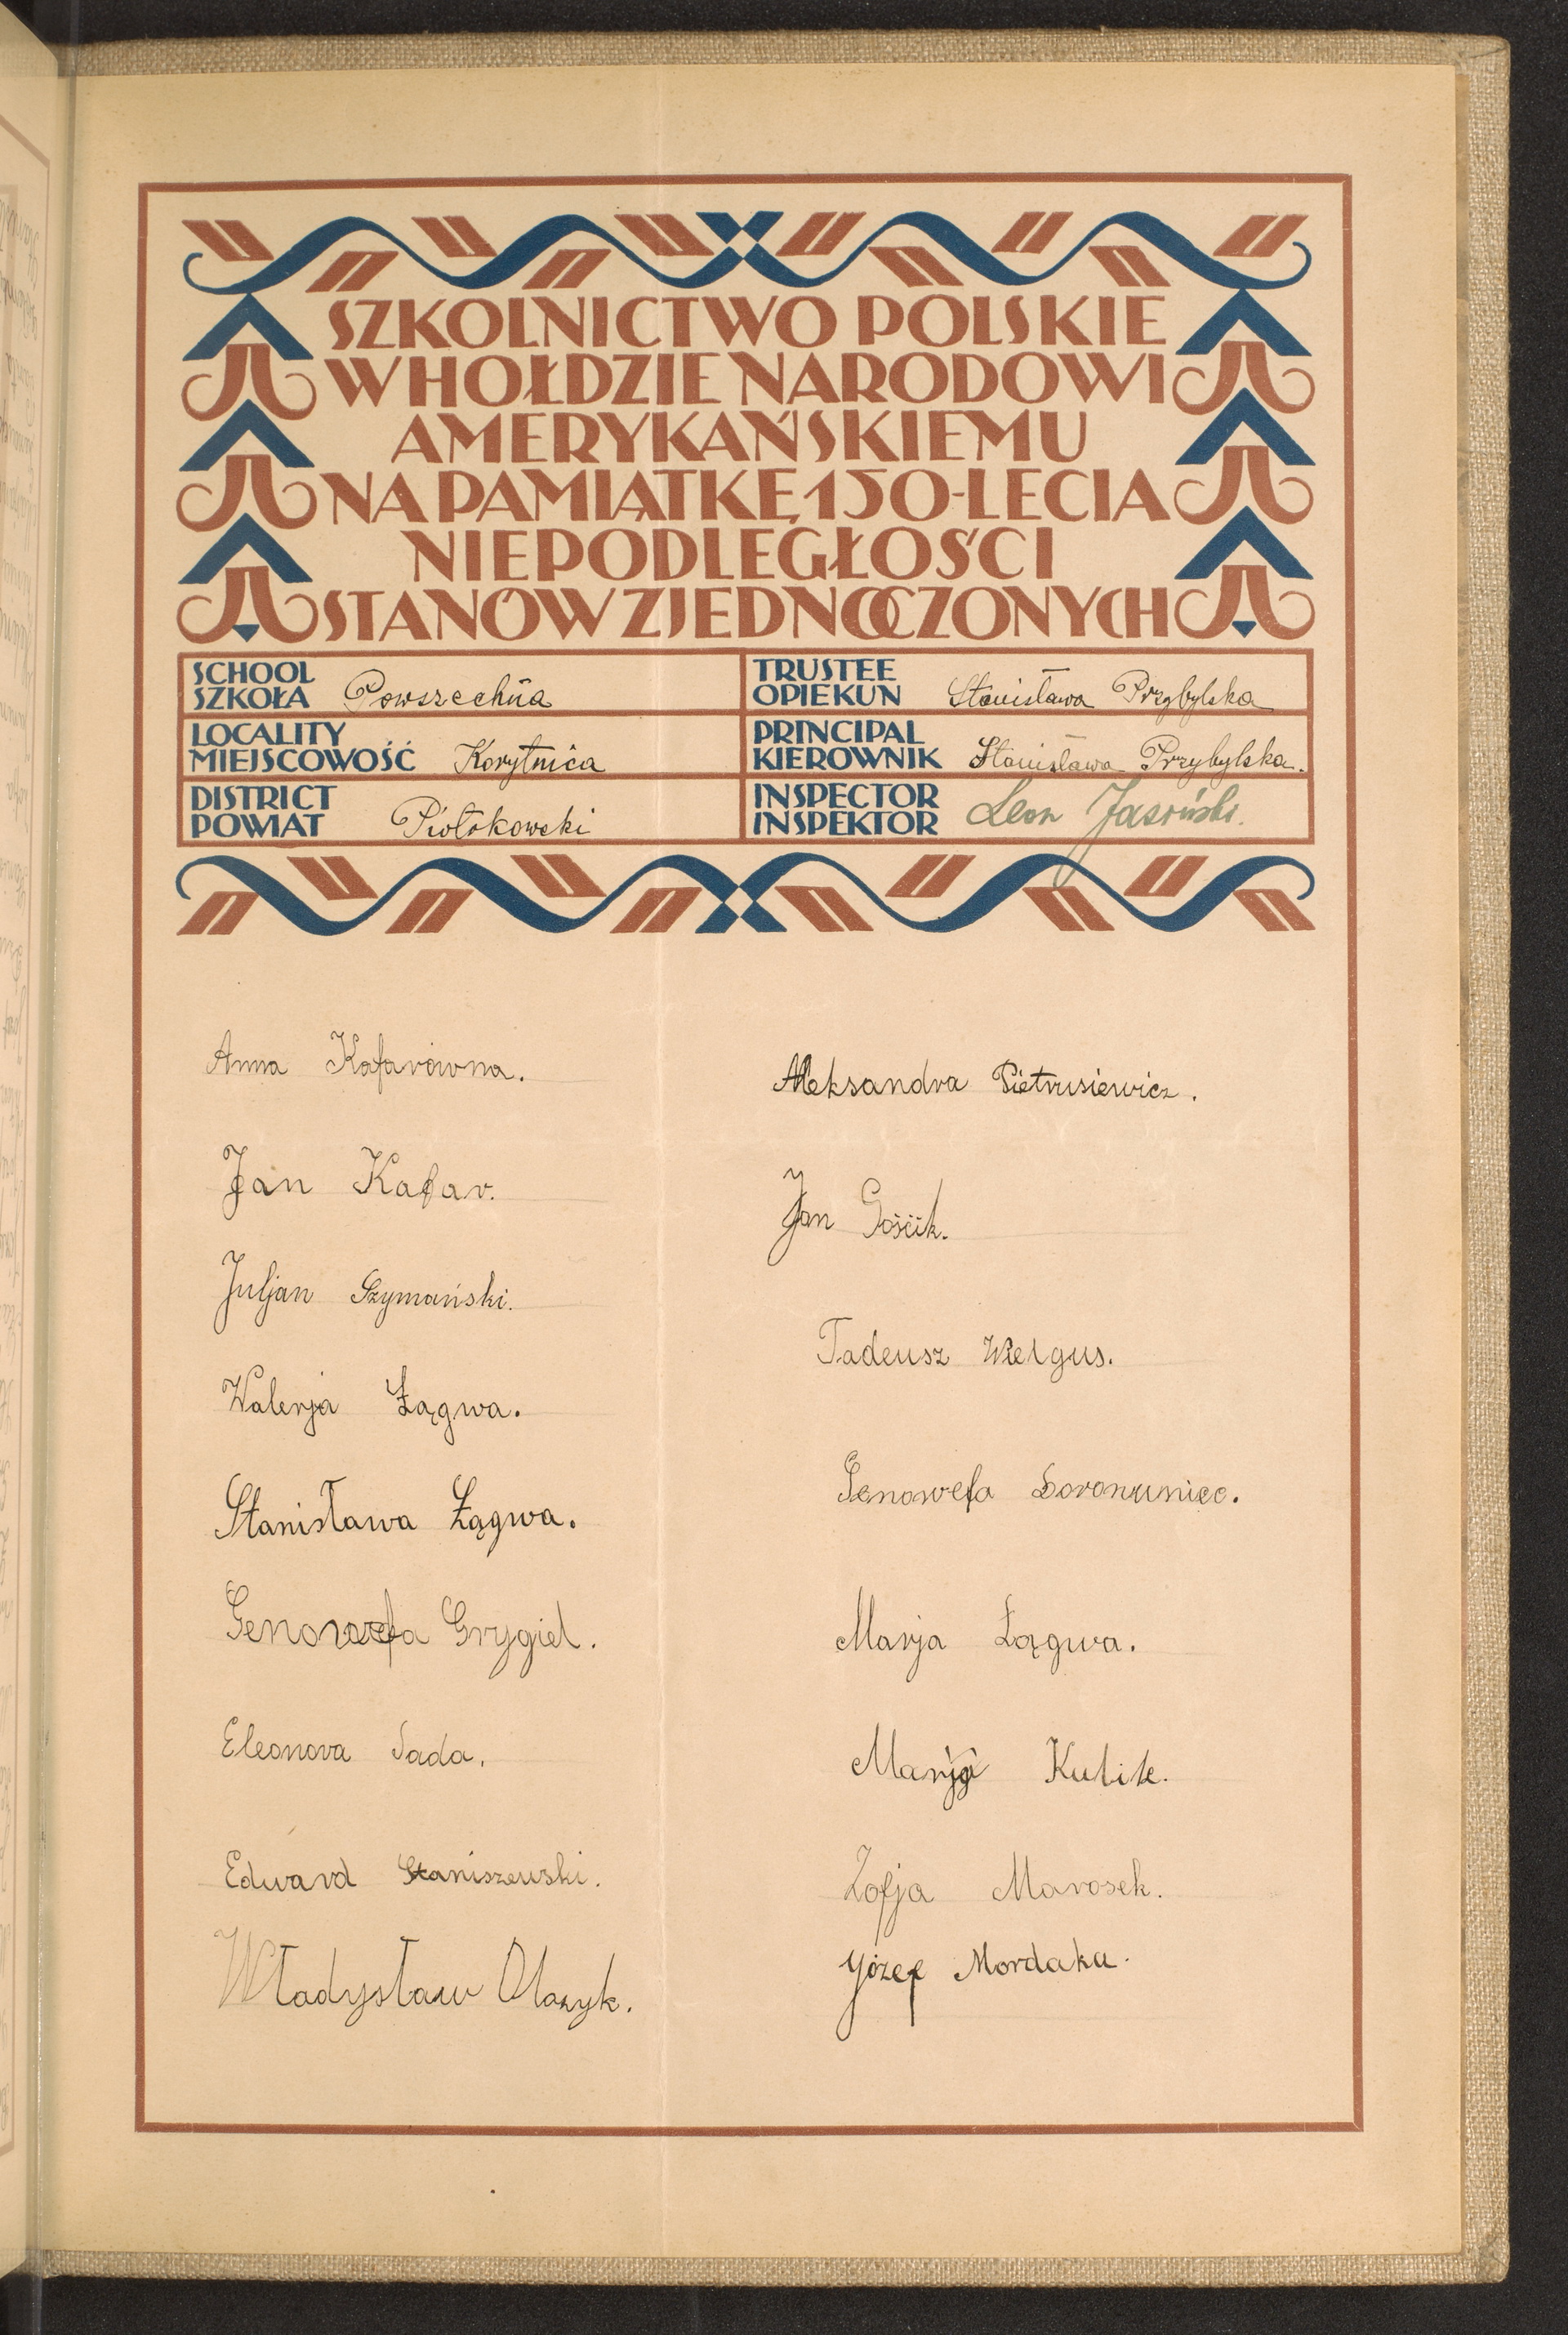 SZKOLNICTWO POLSKIE
W HOŁDZIE NARODOWI
AMERYKAŃSKIEMU
NA PAMIĄTKĘ 150-LECIA
NIEPODLEGŁOŚCI
STANÓW ZJEDNOCZONYCH
SCHOOL
SZKOŁA Powszechna
TRUSTEE
OPIEKUN Stanisława Przybylska
LOCALITY
MIEJSCOWOŚĆ Korytnica
PRINCIPAL
KIEROWNIK Stanisława Przybylska.
DISTRICT
POWIAT
INSPECTOR
INSPEKTOR Leon Jasiński.
Anna Kafarówna.
Jan Kafar.
Juljan Szymański.
Walerja Łągwa.
Stanisława Łągwa.
Genowefa Grygiel.
Eleonora Sada.
Edward Staniszewski.
Władysław
Aleksandra Pietrusiewicz.
Jan Gościk.
Tadeusz Wielgus.
Genowefa
Marja Łągwa.
Marja Kulik.
Zofja Marosek.
Józef Mordaka.